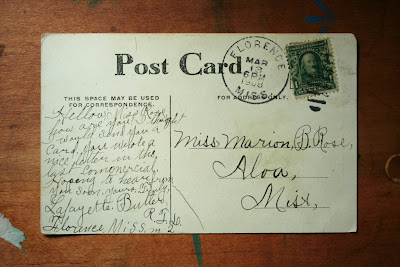 Post Card.
FLORENCE
MAR
12
6 PM
1908
MISS.
THIS SPACE MAY BE USED
FOR CORRESPONDENCE.
FOR ADDRESS ONLY.
Hellow, Miss
how are you I thought
I would send you a
Card, you wrote a
nice letter in the
last Commercial
hoping to hear from
you soon, yours Truly,
Lafayette Butler,
R.F.D.
Florence, Miss m 2
Miss Marion, B. Rose,
Alva,
Miss,